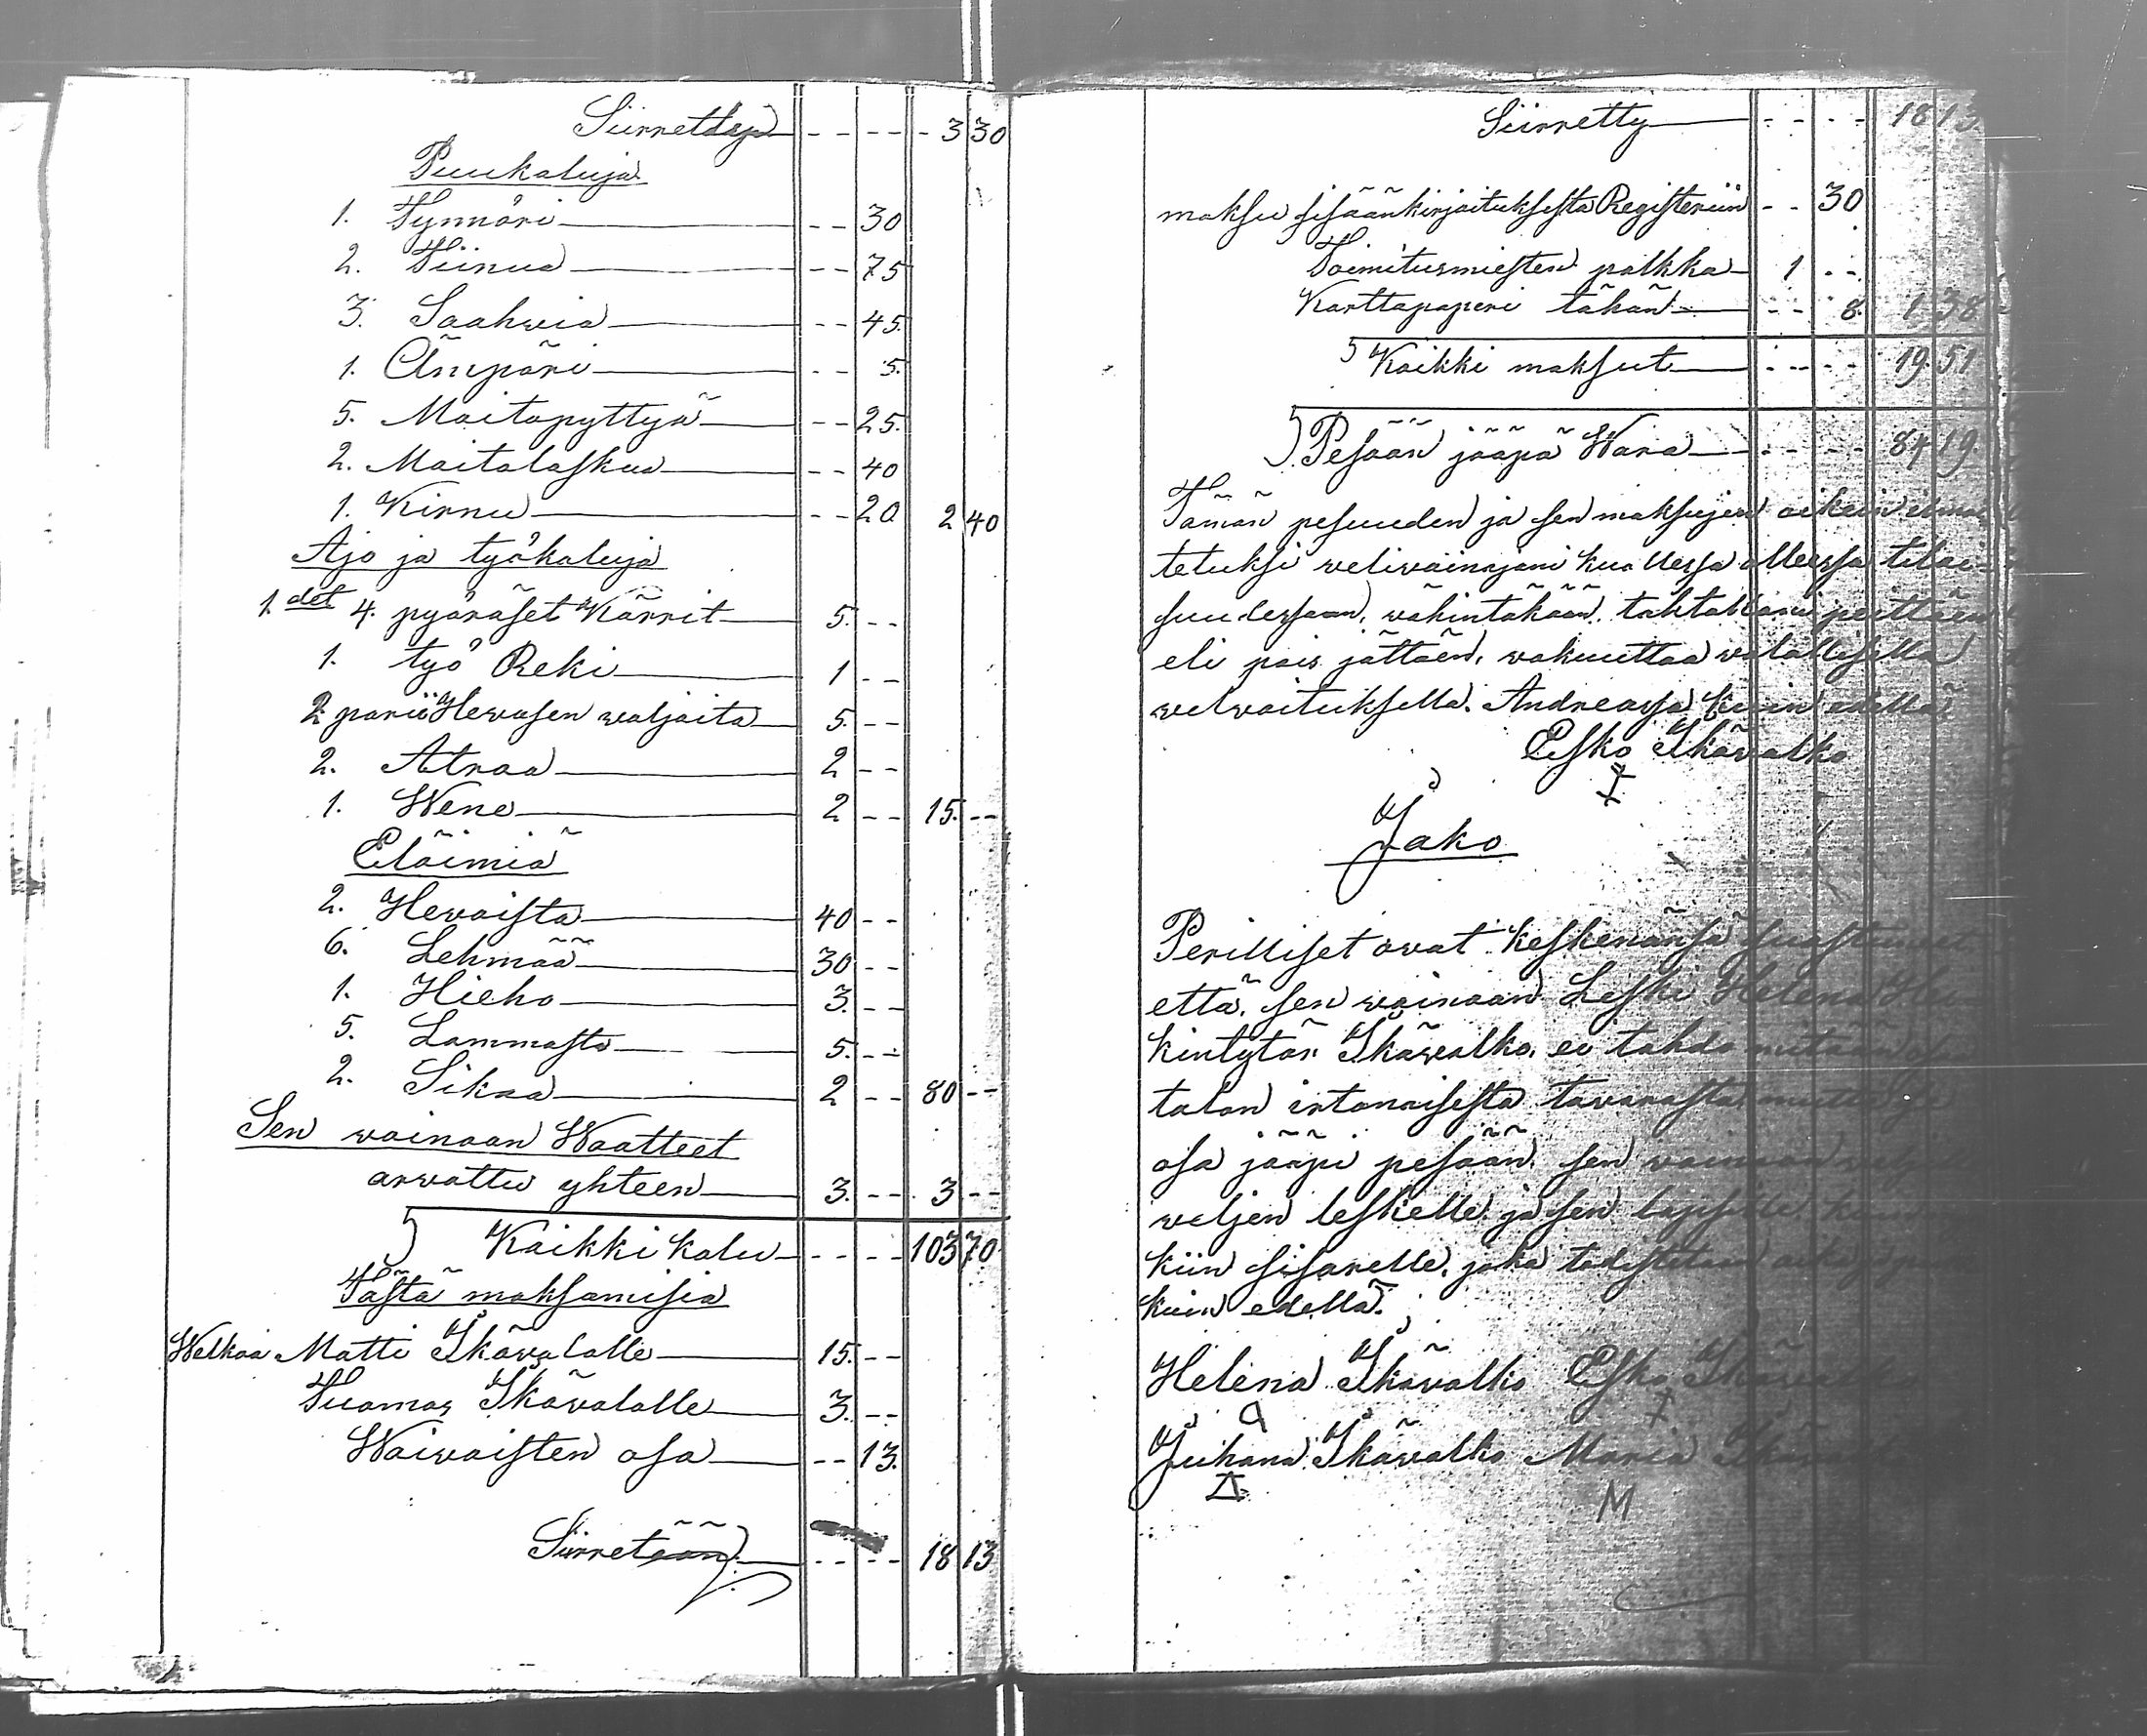 Siirrettyjä - - - - - 3 30
Puukaluja
1. Tynnöri - - 30
2. Tiinua - - 75
3. Saahwia - - 45.
1. Ämpäri - - 5.
5. Maitopyttyä - - 25.
2. Maitolaskua - - 40
1. Kirnu - - 20 2 40
Ajo ja työkaluja
1. det 4. pyöräset Kärrit 5. - -
1. työ Reki 1 - -
2 pariä Hewosen waljaita 5. - -
2. Atraa 2 - -
1. Wene 2 - - 15. - -
Eläimiä
2. Hewaista 40 - -
6. Lehmää 30 - -
1. Hieho 3. - -
5. Lammasta 5. - -
2. Sikaa 2 - - 80 - -
Sen wainaan Waatteet
arwattu yhteen 3. - - 3 - -
Kaikki kalu - - - - 103 70
Tästä maksamisia
Welkaa Matti Ikävalalle 15. - -
Tuomas Ikävalalle 3. - -
Waiwaisten osa - - 13.
Siirretään - - - - 18 13
Siirretty - - - - 18 13.
maksu sisäänkirjoituksesta Registeriin - - 30
Toimitusmiesten palkka 1 - -
Karttapaperi tähän - - 8. 1 38
Kaikki maksut - - - - 19. 51
Pesään jääpä Wara - - - - 84 19.
Tämän pesuuden ja sen maksujen oikein ilmoi
tetuksi weliwainajani kuollessa olleessa tilai
suudessaan, wähintäkään tahtallani peittäen
eli pois jättäen, wakuuttaa walallisella
welwoituksella. Andreassa kuin edellä
Esko Ikäwalko
Jako
Perilliset owat keskenänsä suostuneet
että, sen wainaan Leski Helena
Kintytär Ikäwalko, ei tahdo mitään
talon irtonaisesta tawarasta mutta se
osa jääpi pesään sen wainaan
weljen leskelle ja sen lapsille
kiin sisarelle, joka todistetaan
kuin edellä.
Helena Ikävalko Esko Ikäwalko
Juhana Ikäwalko Maria
M